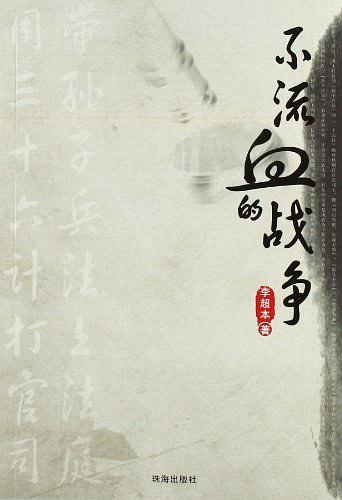 不流血的战争
李超本 著
带孙子兵法上法庭
用三十六计打官司
珠海出版社